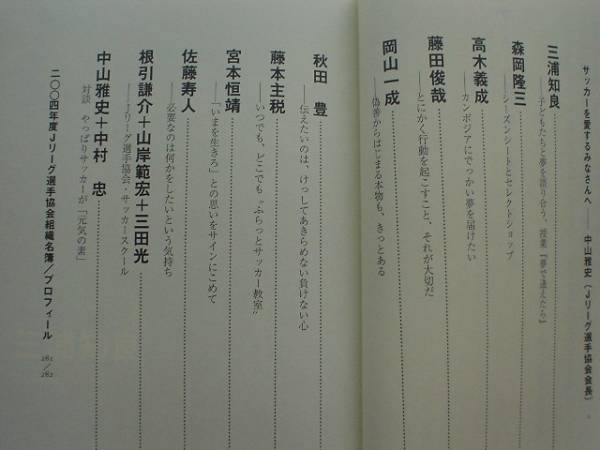 サッカーを愛するみなさんへ――中山雅史(Jリーグ選手協会会長)
三浦知良
――子どもたちと夢を語り合う、授業『夢で逢えたら』
森岡隆三
――シーズンシートとセレクトショップ
高木義成
――カンボジアにでっかい夢を届けたい
藤田俊哉
――とにかく行動を起こすこと、それが大切だ
岡山一成
――偽善からはじまる本物も、きっとある
秋田 豊
――伝えたいのは、けっしてあきらめない負けない心
藤本主税
――いつでも、どこでも〝ふらっとサッカー教室〟
宮本恒靖
――「いまを生きろ」との思いをサインにこめて
佐藤寿人
――必要なのは何かをしたいという気持ち
根引謙介＋山岸範宏＋三田光
――Jリーグ選手協会・サッカースクール
中山雅史＋中村 忠
対談 やっぱりサッカーが「元気の素」
二〇〇四年度Jリーグ選手協会組織名簿／プロフィール 281／282